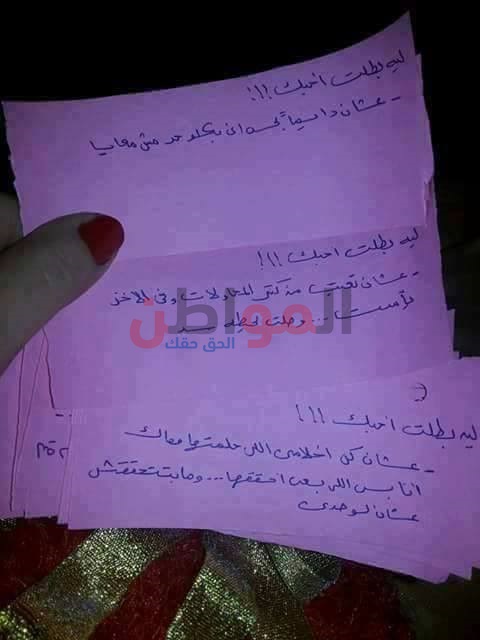 ليه بطلت احبك !!!
- عشان دايماً بحس انى بكلم حد مش معايا
ليه بطلت احبك !!!
- عشان تعبت من كتر المحاولات وفى الاخر
... وصلت لحيطه سد
المواطن
الحق حقك
ليه بطلت احبك !!!
- عشان كل احلامى اللى حلمتها معاك
انا بس اللى بعى احققها... ومابتتحققش
عشان لوحدى